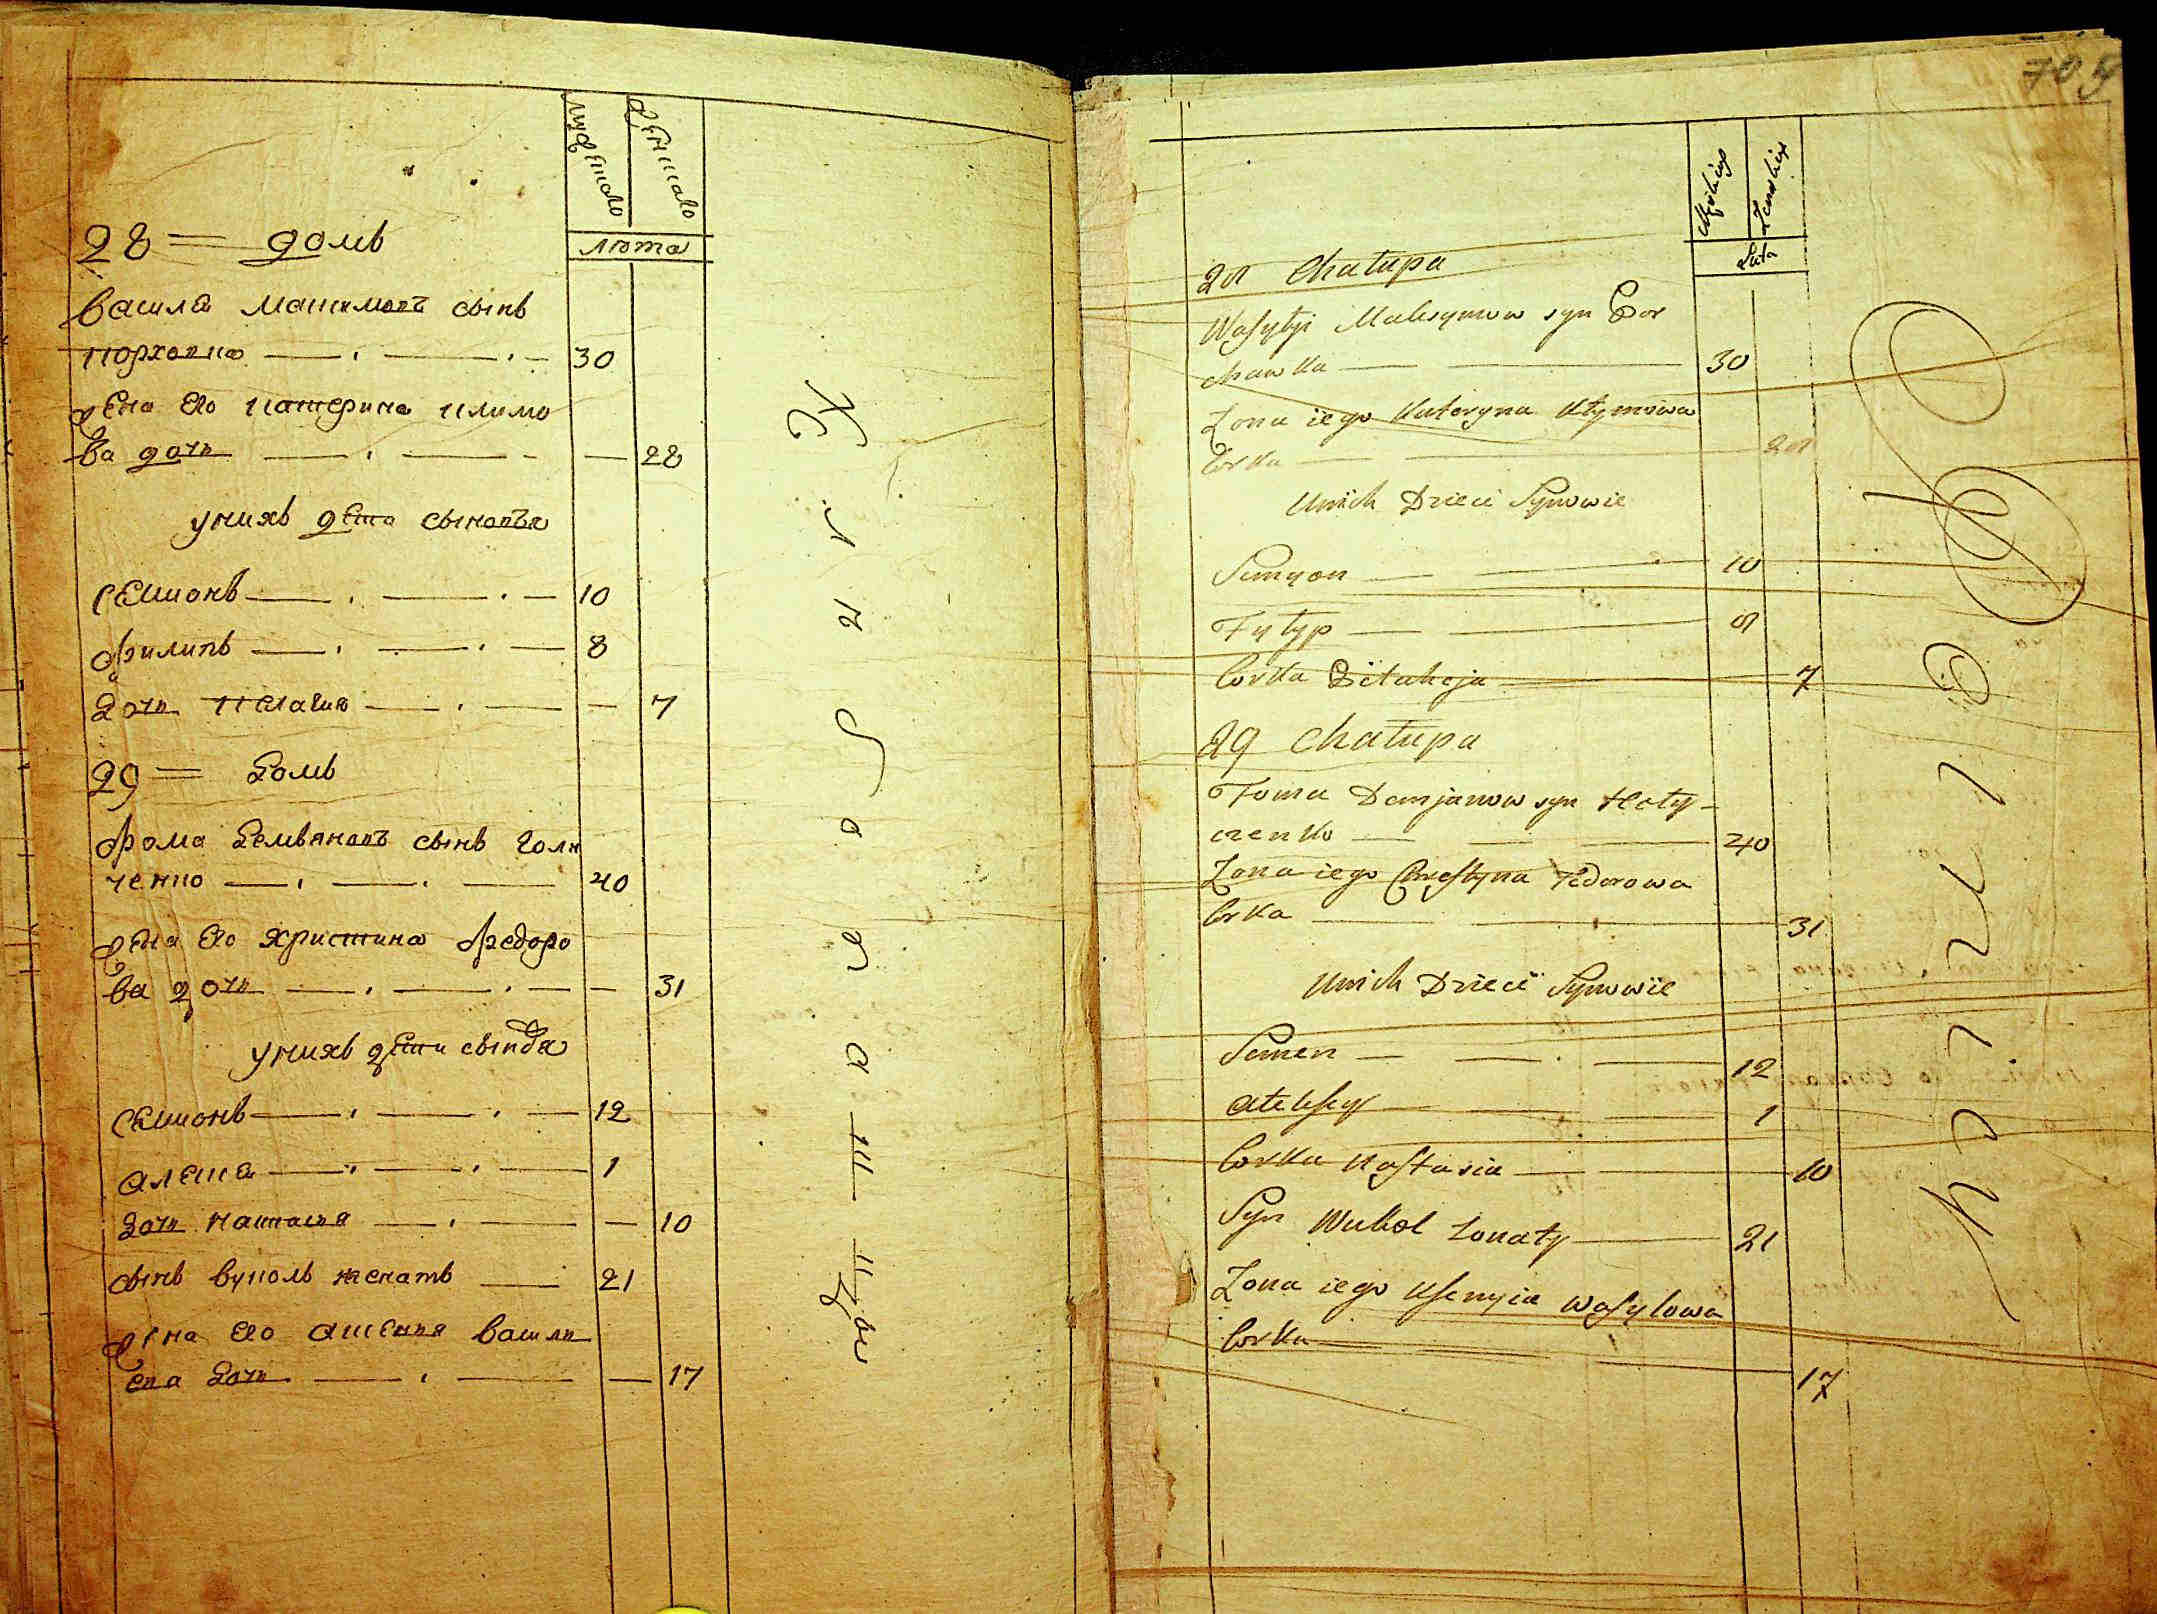 мужеского
женского
лѣта
28 = домъ
василѣ Максимовъ сынъ
порховка 30
жена его катерина клімо
ва дочь 28
у нихъ дети сыновъя
семионъ 10
филипъ 8
дочь пелагия 7
29 = домъ
фома демъяновъ сынъ голи
ченко 40
жена его христина федоро
ва дочь 31
у нихъ дети сыновъя
семионъ 12
алексѣ 1
дочь настасия 10
сынъ вуколь женатъ 21
жена его аксения васили
ева дочь 17
705
Męskiego
Żenskiego
Lata
28 Chałupa
Wasylyi Maksymow syn Por
chawka 30
Zona iego Kateryna Kłymowa
Corka 28
Unich Dzieci Synowie
Semyon 10
Fyłyp 8
Corka Pełaheja 7
29 Chałupa
Foma Demjanow syn Hoły-
czenko 40
Zona iego Chrestyna Fedorowa
Corka 31
Unich Dzieci Synowie
Semen 12
Ałeksey 1
Corka Nastasia 10
Syn Wukoł Zonaty 21
Zona iego Ksenyia Wasylowa
Corka 17